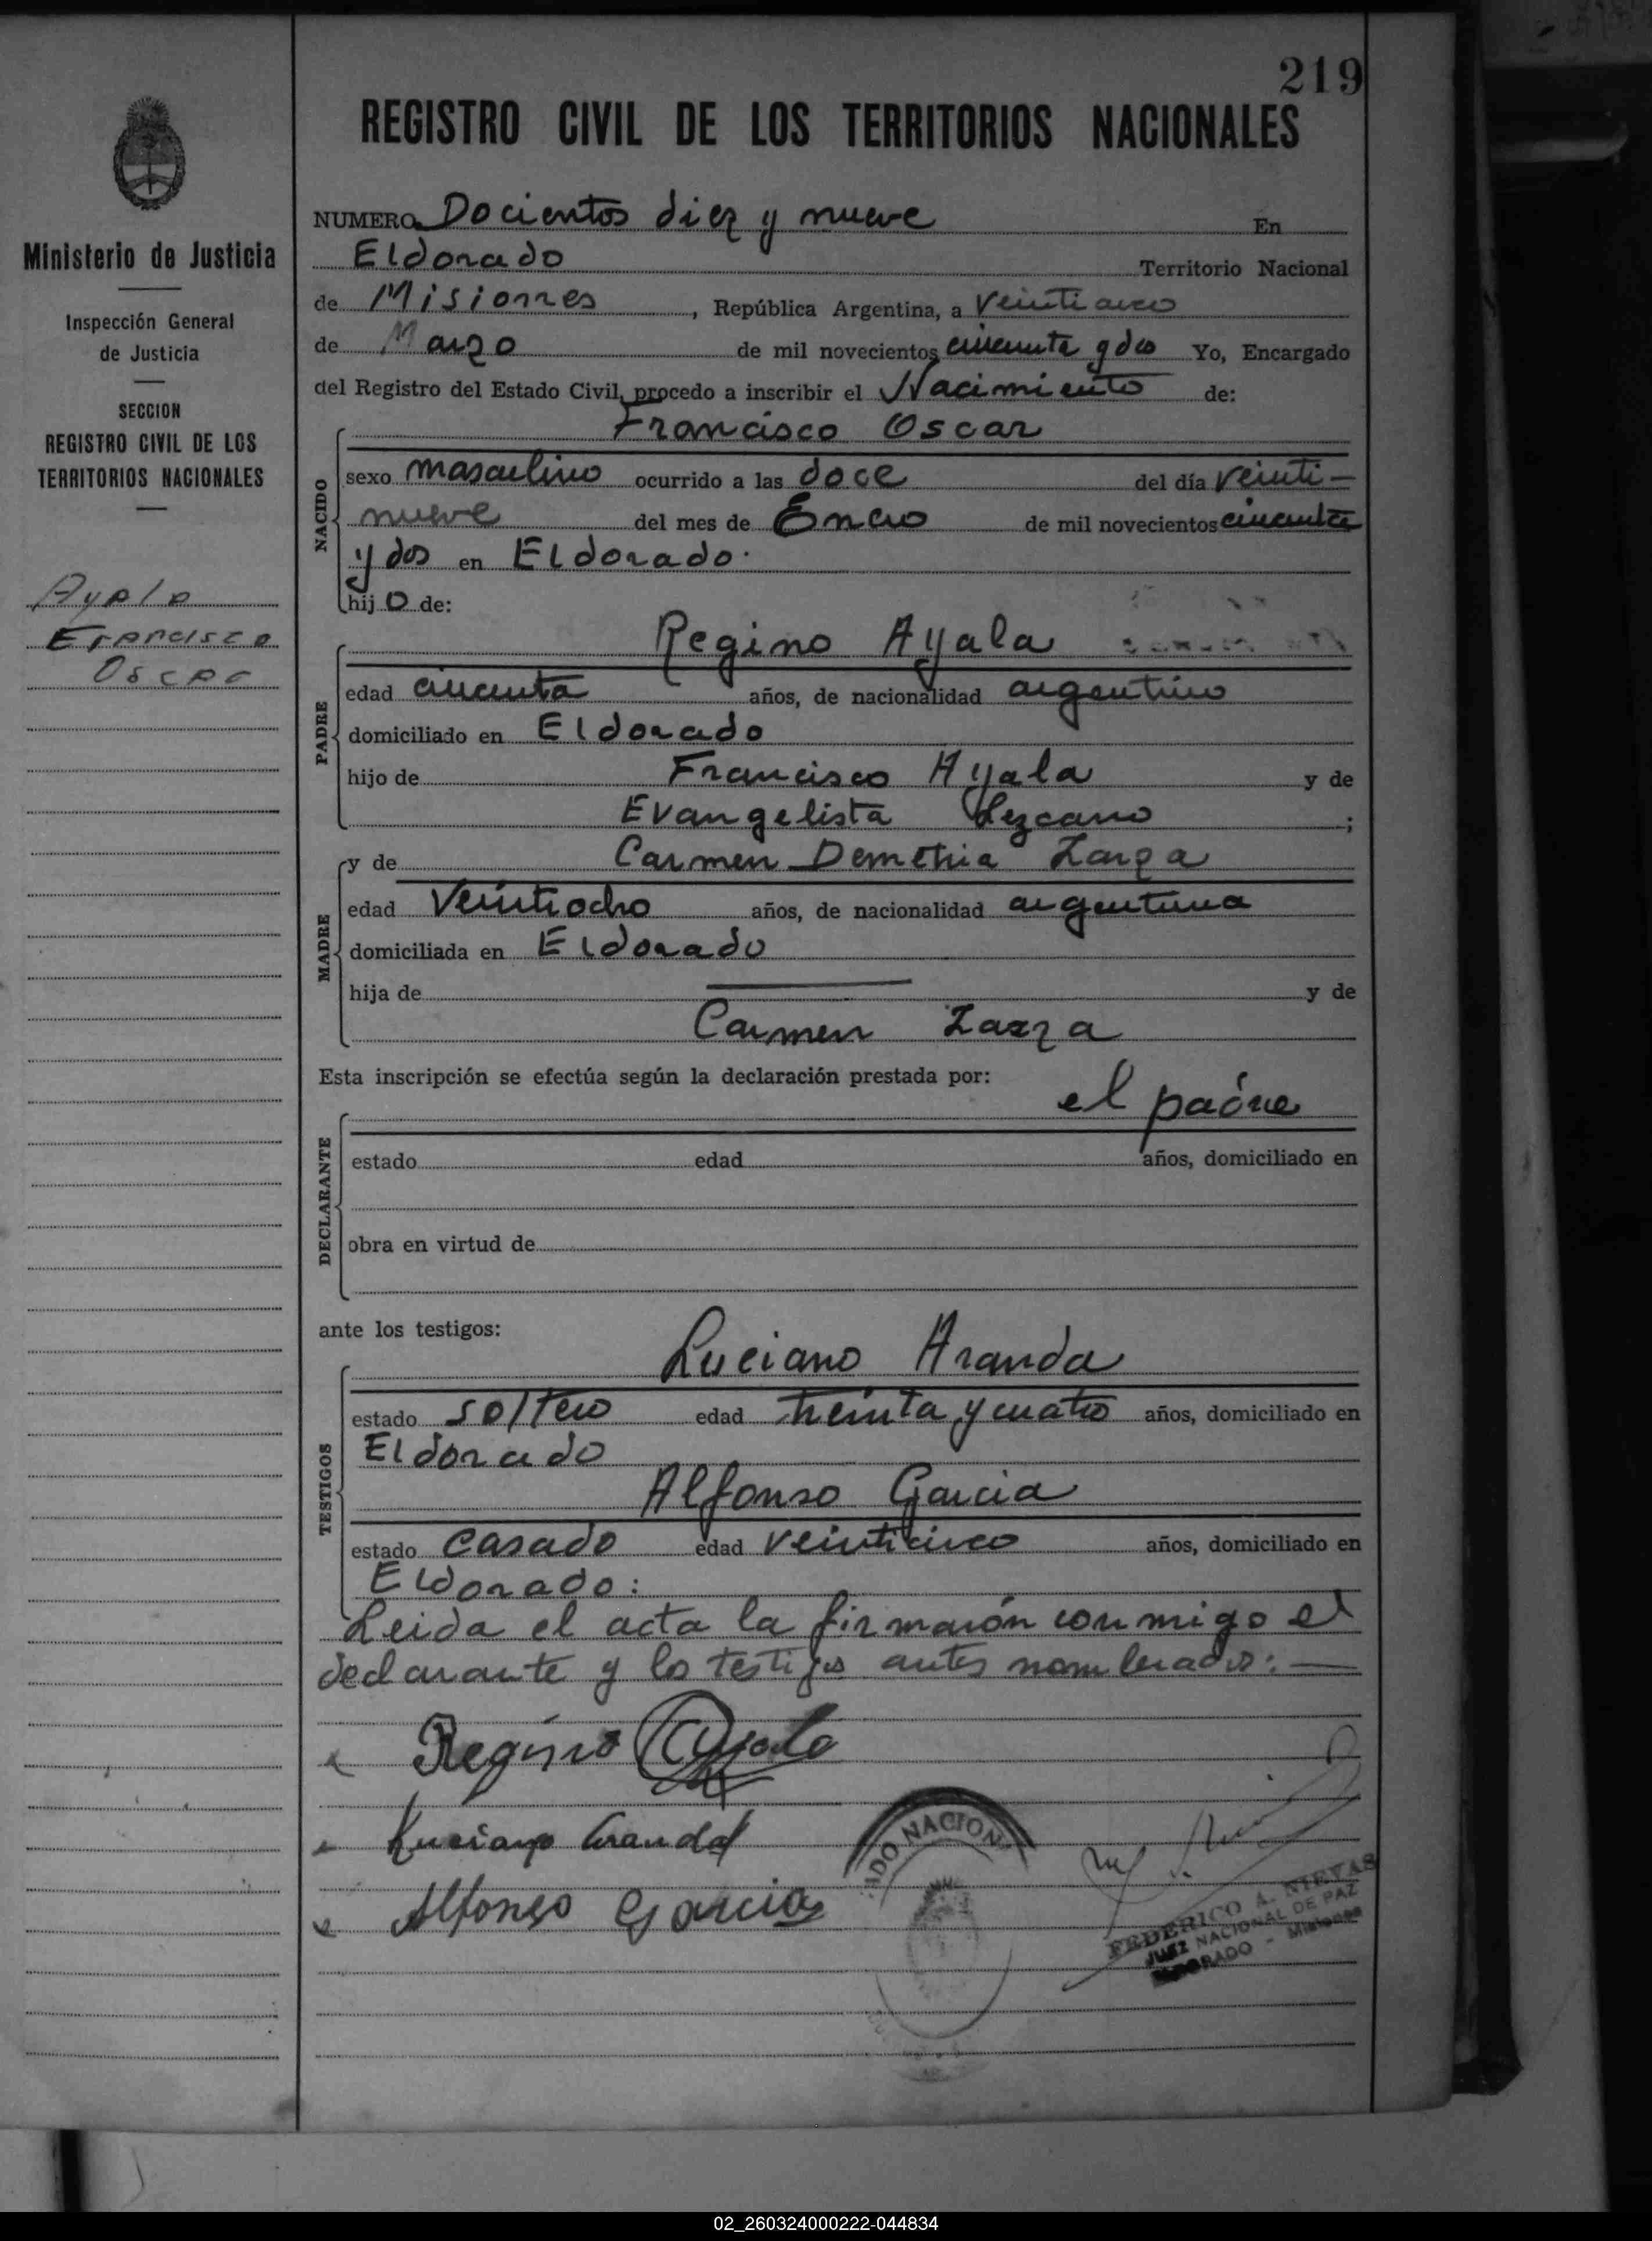 219
REGISTRO CIVIL DE LOS TERRITORIOS NACIONALES
Ministerio de Justicia
Inspección General
de Justicia
SECCION
REGISTRO CIVIL DE LOS
TERRITORIOS NACIONALES
Ayala
Francisco
Oscar
NUMERO Docientos diez y nueve En
Eldorado Territorio Nacional
de Misiones, República Argentina, a veinticinco
de Marzo de mil novecientos cincuenta y dos Yo, Encargado
del Registro del Estado Civil, procedo a inscribir el Nacimiento de:
Francisco Oscar
NACIDO
sexo masculino ocurrido a las doce del día veinti-
nueve del mes de Enero de mil novecientos cincuenta
y dos en Eldorado.
hijo de:
Regino Ayala
PADRE
edad cincuenta años, de nacionalidad argentino
domiciliado en Eldorado
hijo de Francisco Ayala y de
Evangelista Lezcano ;
MADRE
y de Carmen Demetria Zarza
edad Veintiocho años, de nacionalidad argentina
domiciliada en Eldorado
hija de —— y de
Carmen Zarza
Esta inscripción se efectúa según la declaración prestada por:
el padre
DECLARANTE
estado edad años, domiciliado en
obra en virtud de
ante los testigos:
Luciano Aranda
TESTIGOS
estado soltero edad treinta y cuatro años, domiciliado en
Eldorado
Alfonso Garcia
estado casado edad veinticinco años, domiciliado en
Eldorado:
Leida el acta la firmarón conmigo el
declarante y los testigos antes nombrados:—
Regino Ayala
Luciano Aranda
Alfonso Garcia
ADO NACION
FEDERICO A. NIEVAS
JUEZ NACIONAL DE PAZ
ELDORADO - Misiones
02_260324000222-044834